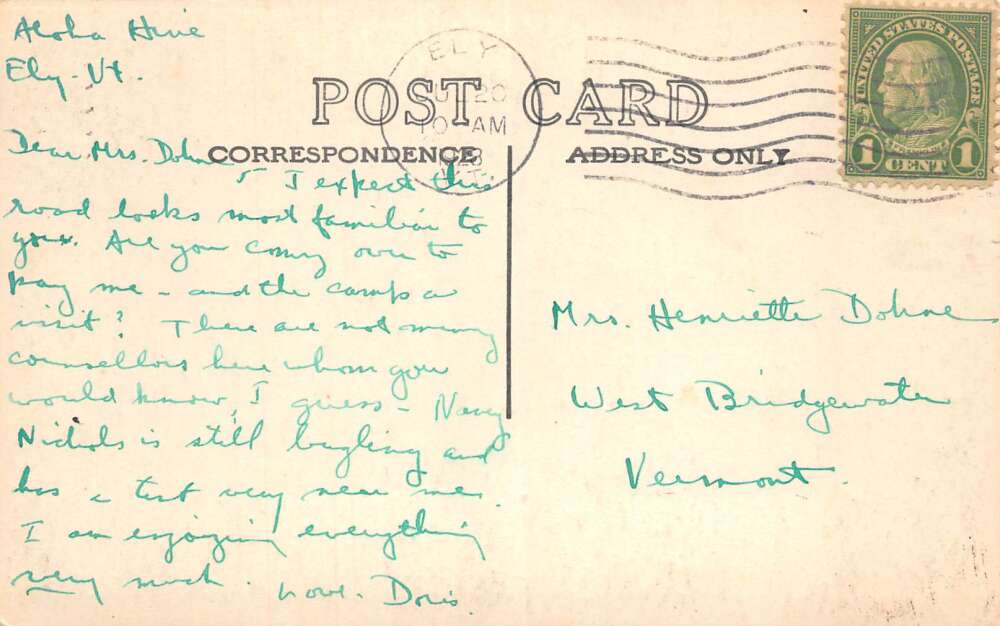 Aloha Hive
Ely - Vt.
POST CARD
CORRESPONDENCE
ADDRESS ONLY
ELY
20
10 AM
UNITED STATES POSTAGE
1 CENT 1
Dear Mrs. Dohne
I expect this
road looks most familiar to
you. Are you coming over to
pay me - and the camp a
visit? There are not many
counsellors here whom you
would know, I guess - Nancy
Nichols is still bugling and
has a tent very near me.
I am enjoying everything
very much. Love - Doris.
Mrs. Henriette Dohne
West Bridgewater
Vermont.